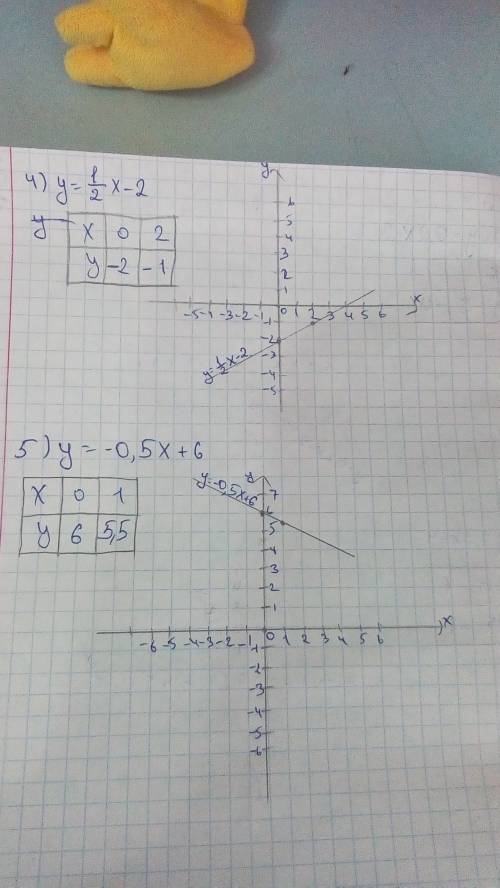 4) y = 1/2 x - 2
y
x 0 2
y -2 -1
y
6
5
4
3
2
1
-5 -4 -3 -2 -1 0 1 2 3 4 5 6 x
-1
-2
-3
-4
-5
y=1/2x-2
5) y = -0,5x + 6
x 0 1
y 6 5,5
y=-0,5x+6
y
7
6
5
4
3
2
1
-6 -5 -4 -3 -2 -1 0 1 2 3 4 5 6 x
-1
-2
-3
-4
-5
-6